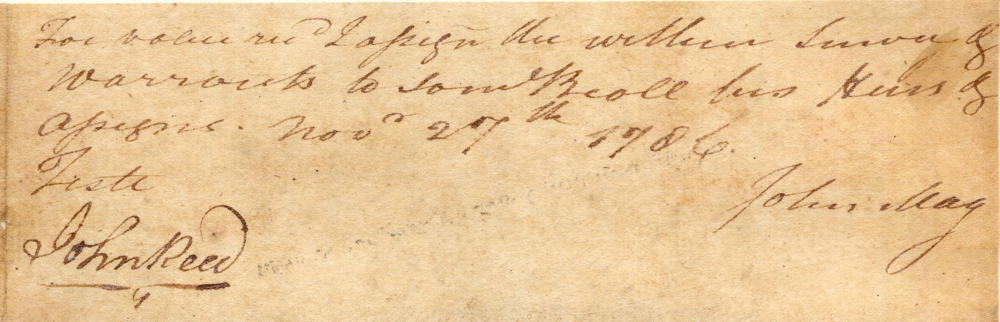 For value recd I assign the within Survey &
Warrants to Saml Beall his Heirs &
Assigns. Novr 27th 1786.
Teste
John May
John Reed